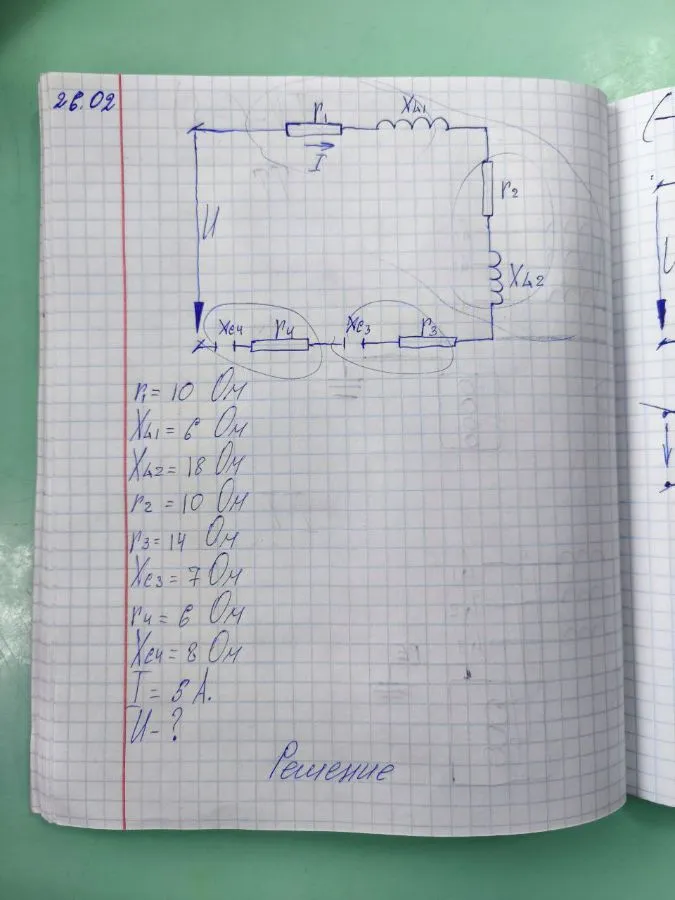 26.02
r1
XL1
I
r2
U
XL2
Xc4
r4
Xc3
r3
r1 = 10 Ом
XL1 = 6 Ом
XL2 = 18 Ом
r2 = 10 Ом
r3 = 14 Ом
Xc3 = 7 Ом
r4 = 6 Ом
Xc4 = 8 Ом
I = 5 А.
U - ?
Решение